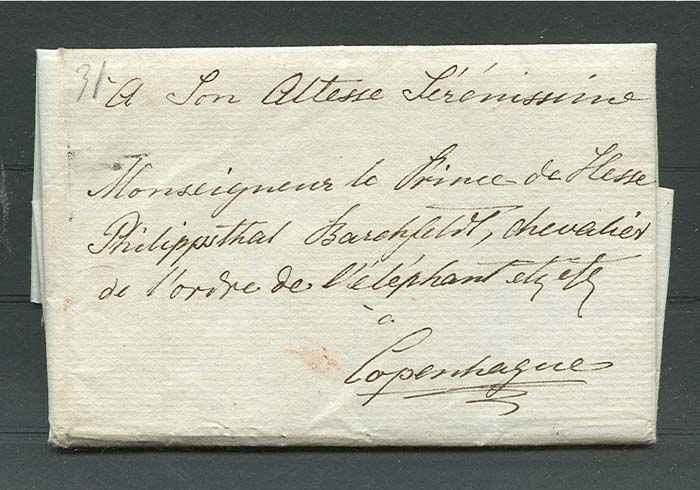 31
A Son Altesse Sérénissime
Monseigneur le Prince de Hesse
Philippsthal Barchfeldt, chevalier
de l'ordre de l'éléphant etz etz
à
Copenhague